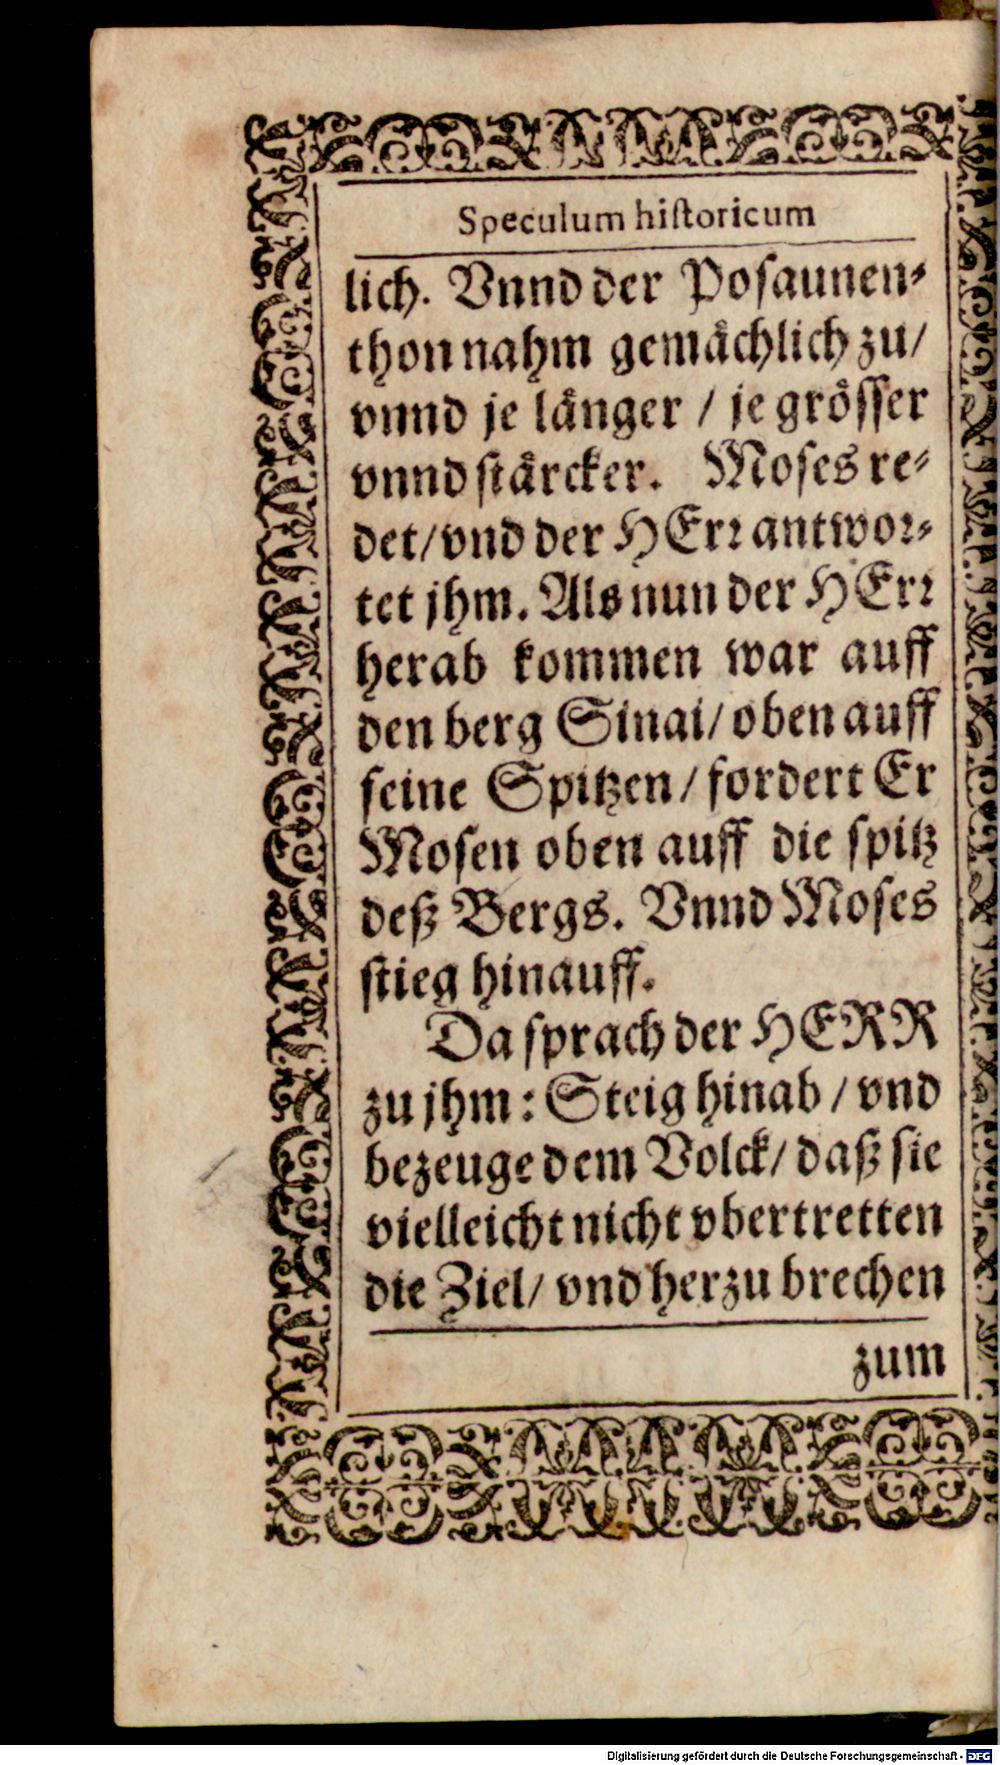 Speculum hiſtoricum
lich. Vnnd der Poſaunen⸗
thon nahm gemaͤchlich zu/
vnnd je laͤnger / je groͤſſer
vnnd ſtaͤrcker. Moſes re⸗
det/ vnd der HErꝛ antwoꝛ⸗
tet jhm. Als nun der HErꝛ
herab kommen war auff
den berg Sinai/ oben auff
ſeine Spitzen/ fordert Er
Moſen oben auff die ſpitz
deß Bergs. Vnnd Moſes
ſtieg hinauff.
Da ſprach der HERR
zu jhm: Steig hinab / vnd
bezeuge dem Volck/ daß ſie
vielleicht nicht vbertretten
die Ziel/ vnd herzu brechen
zum
Digitalisierung gefördert durch die Deutsche Forschungsgemeinschaft - DFG